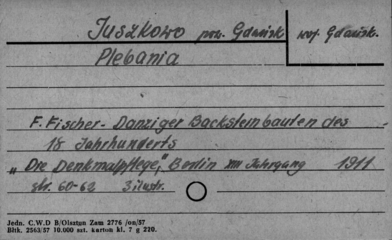 Juszkowo pow. Gdańsk woj. Gdańsk.
Plebania
F. Fischer - Danziger Backsteinbauten des
18 Jahrhunderts
„Die Denkmalpflege," Berlin XIII Jahrgang 1911
str. 60-62 3 ilustr.
Jedn. C.W.D B/Olsztyn Zam 2776 /on/57
Bltk. 2563/57 10.000 szt. karton kl. 7 g 220.